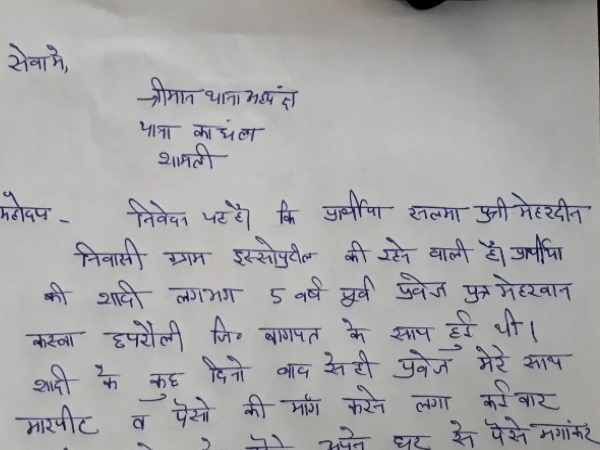 सेवा मे,
श्रीमान थाना अध्यक्ष
थाना कांधला
शामली
महोदय - निवेदन यह है। कि प्रार्थीया सलमा पुत्री मेहरदीन
निवासी ग्राम इस्सोपुरटील की रहने वाली है। प्रार्थीया
की शादी लगभग 5 वर्ष पूर्व प्रवेज पुत्र मेहरवान
कस्वा छपरौली जि० बागपत के साथ हुई थी।
शादी के कुछ दिनो बाद से ही प्रवेज मेरे साथ
मारपीट व पैसो की माँग करने लगा कई बार
अपने घर से पैसे मगांकर